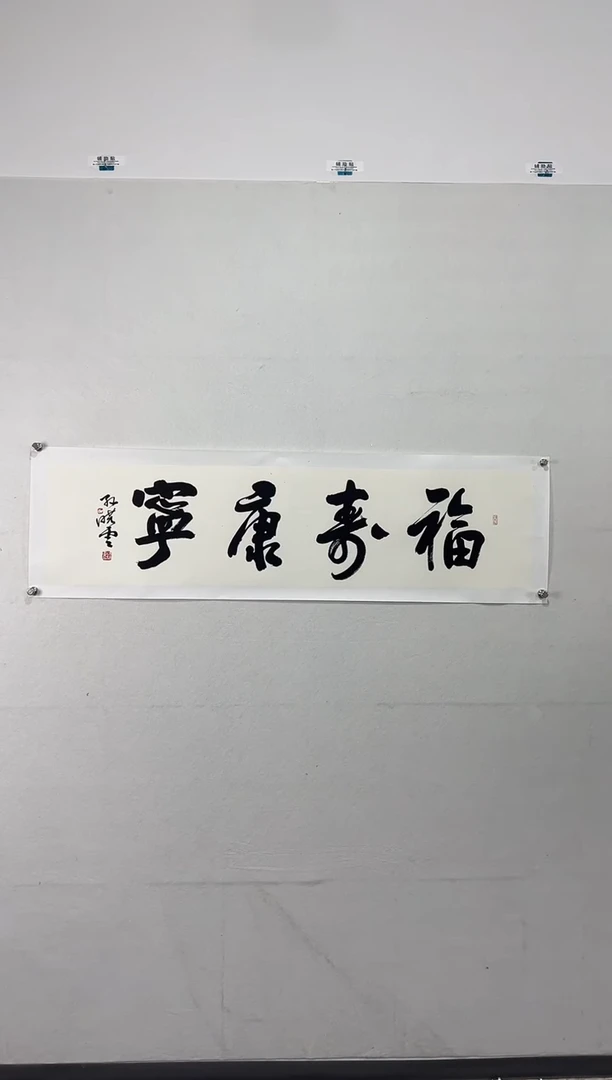 福寿康寧
孙晓云